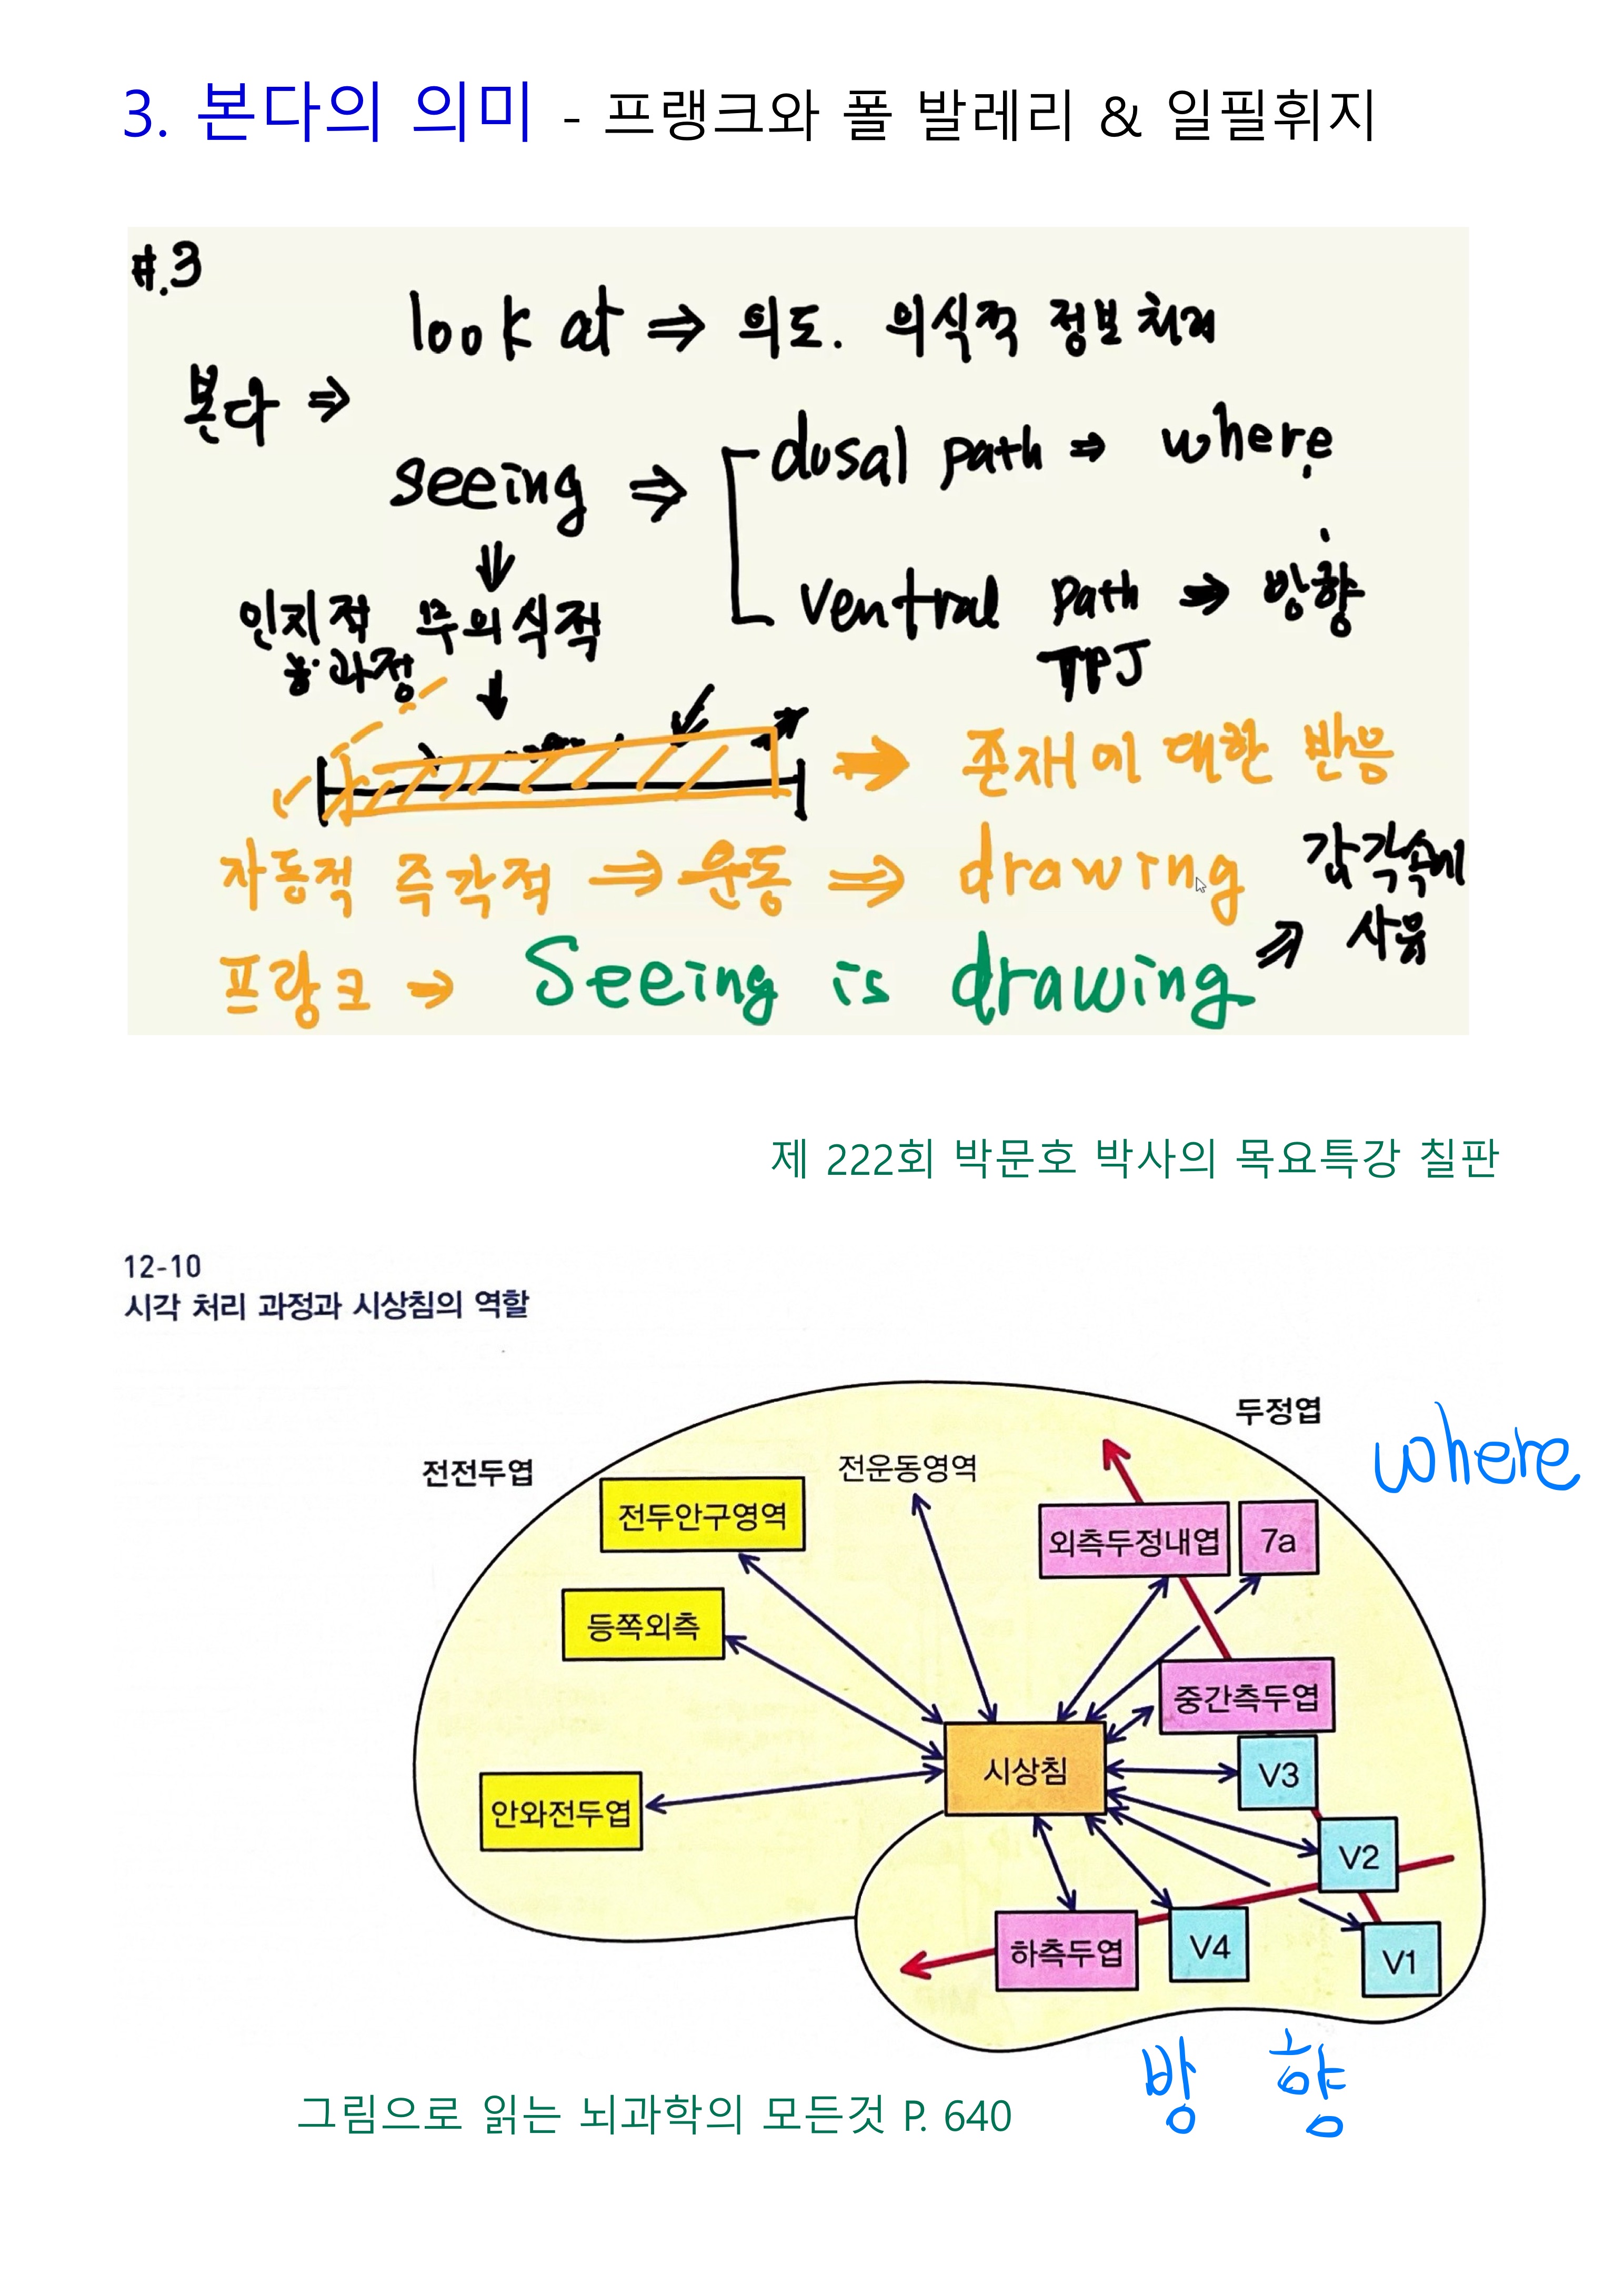 3. 본다의 의미 - 프랭크와 폴 발레리 & 일필휘지
#.3
look at ⇒ 의도. 의식적 정보처리
본다 ⇒
seeing ⇒ dosal path ⇒ where
ventral path ⇒ 방향
TPJ
인지적 무의식적
과정
⇒ 존재에 대한 반응
자동적 즉각적 ⇒ 운동 ⇒ drawing
감각속에
사유
프랑크 → Seeing is drawing
제 222회 박문호 박사의 목요특강 칠판
12-10
시각 처리 과정과 시상침의 역할
두정엽
where
전전두엽
전운동영역
전두안구영역
외측두정내엽
7a
등쪽외측
중간측두엽
시상침
V3
안와전두엽
V2
하측두엽
V4
V1
방향
그림으로 읽는 뇌과학의 모든것 P. 640